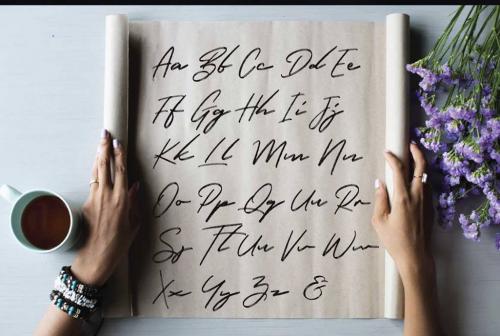 Aa Bb Cc Dd Ee
Ff Gg Hh Ii Jj
Kk Ll Mm Nn
Oo Pp Qq Uu Rr
Ss Tt Uu Vv Ww
Xx Yy Zz &